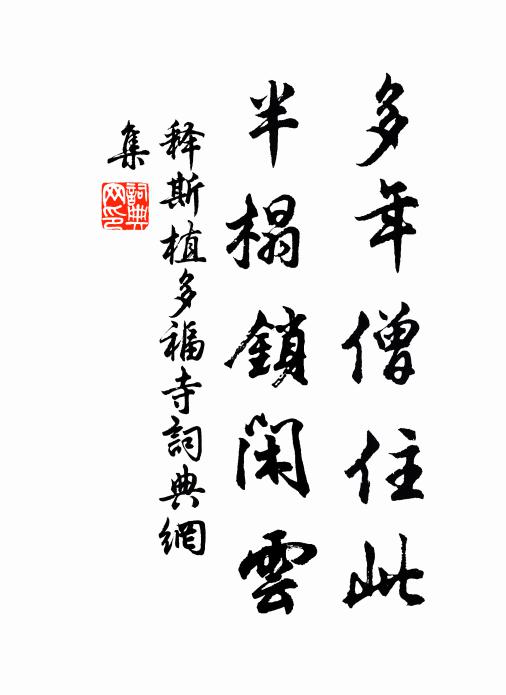 多年僧住此
半榻鎖閑雲
释斯植多福寺詞典網
集
詞典
网印